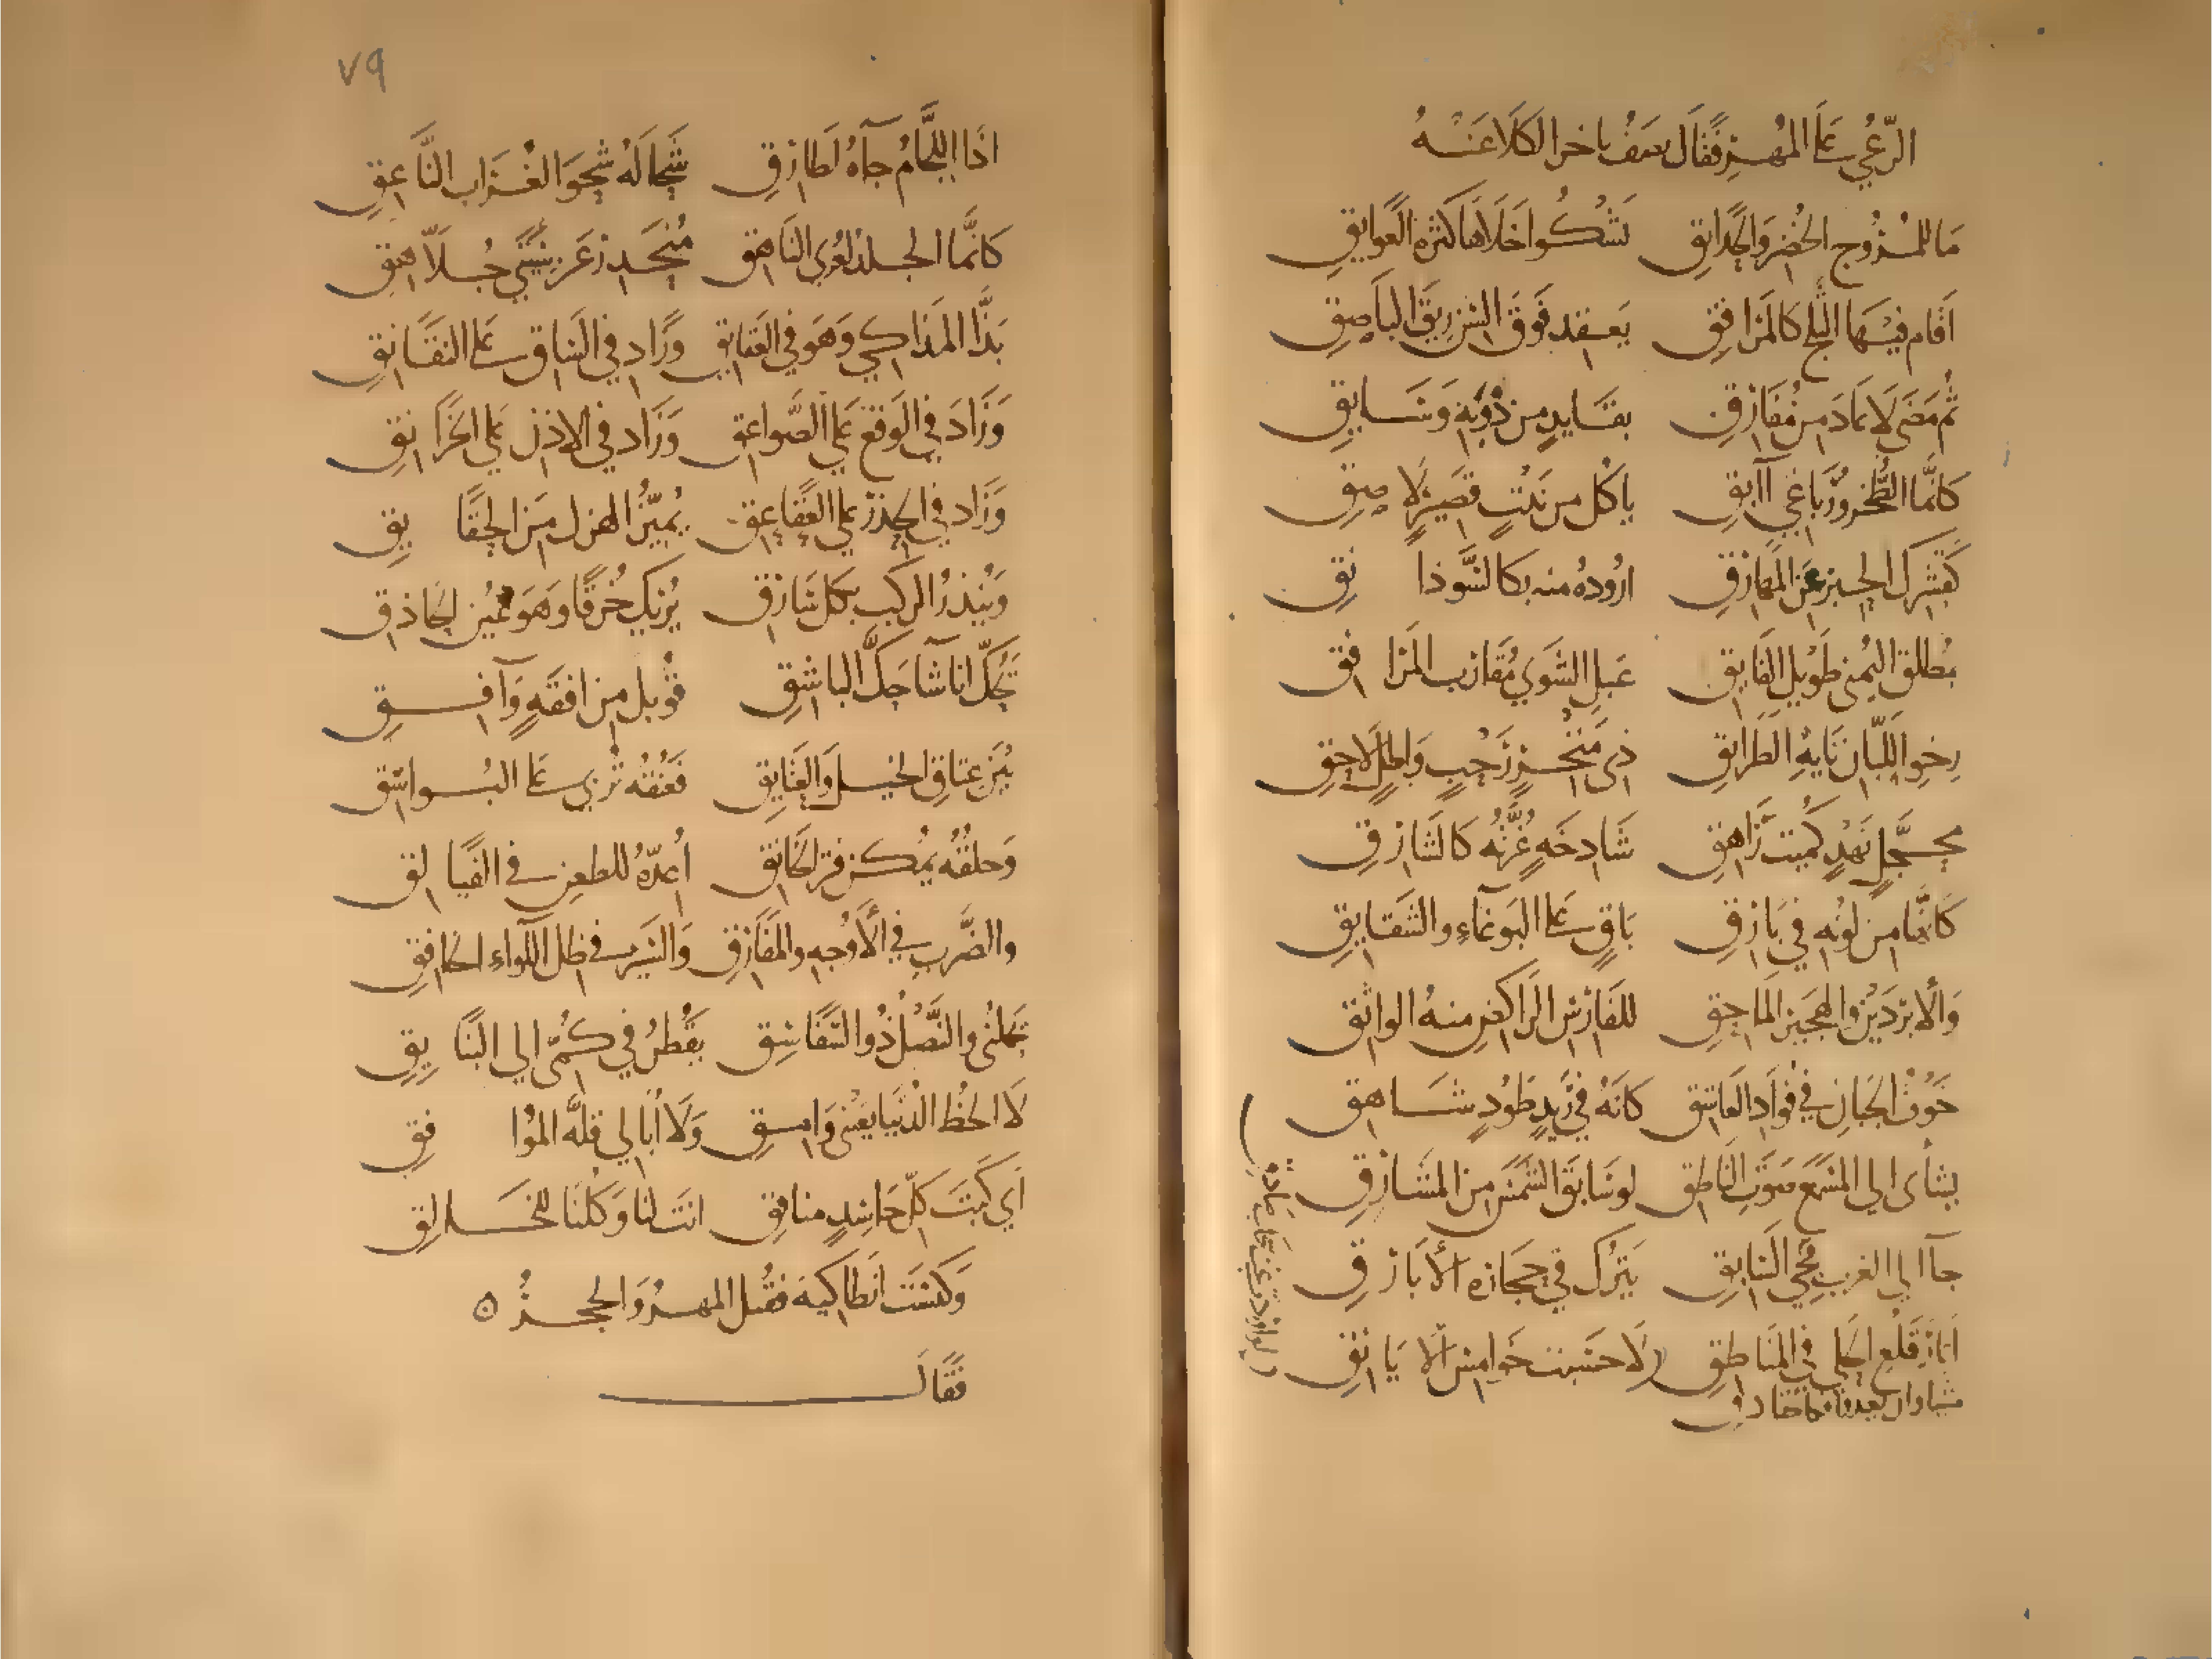 الرّعُي عَلَى المُهْرِ فَقَال يصف تاخر الكَلَا عَنْهُ
مَا للمُرُوجِ الخُضْرِ وَالحَدَائِقِ تَشْكُوا خَلَاهَا كَثْرَة العَوَايِقِ
أقَام فيْهَا الثَّلج كالمَرَافِقِ يَعقِد فَوقَ السّن رِيقَ البَاصِقِ
ثُمّ مَضَى لَا عَادَ مِنْ مُفَارِقِ بقَايدٍ مِن ذَوْبِهِ وَسَايِقِ
كَانَّمَا الطُّخْرُورُ بَاغي آابِقِ يَاكُل مِن نَبْتٍ قَصِيرٍ لَاصِقِ
كَقَشْرِكَ الحِبرَ عَنِ المَهَارِقِ اروُدهُ منه بكالسَّوذَانِقِ
بمُطلَقِ اليُمنى طَوِيلِ الفَايِقِ عَبلِ الشَّوَي مُقَارَبِ المَرَافِقِ
رِخوِ اللَّبَانِ نَايهِ الطَّرَائِقِ ذِي مَنْخَرٍ رَحْبٍ وَاطلٍ لَاحِقِ
مُحجَّلٍ نَهْدٍ كُمَيْتٍ زَاهِقِ شَادِخَةٍ غُرَّتُه كَالشَّارِقِ
كَانّها مِن لَوْنِه في بَارِقِ بَاقٍ عَلَى البَوغَاءِ والشَّقَايِقِ
وَالأبرَدَيْنِ والهَجِيرِ المَاحِقِ للفَارِسِ الرَّاكضِ منهُ الواثِقِ
خَوْفُ الجَبَانِ في فُوَادِ العَاشِقِ كَانَّهُ في رَيدِ طَوْدٍ شَاهِقِ
يشأى الي المِسْمَعِ صَوْتَ النّاطِقِ لو سَابَقَ الشَّمْسَ مِنَ المَشَارِقِ
جَآ الي الغَرْبِ مَجِي السَّابِقِ يَتْرُك في حِجَارَةِ الأبَارِقِ
اثَارَ قَلْعِ الحَلْي في المَنَاطِقِ
مشيا وان يعد فكالخنادق
لَاحْسَبت خَوَامِسَ الأيَانِقِ
٧٩
اذَا اللِّجَامُ جآءَهُ لَطَارِقِ شَحَالَهُ شَحْوَ الغُرَابِ النَّاعِقِ
كَانَّمَا الجِلد لعُرْيِ النَاهِقِ مُنْحَدِرٌ عَن سِيَتَي جُلَاهِقِ
بَذَّ المَذَاكِي وَهوَ في العَقَايِقِ وزَادَ في السَّاقِ عَلَى النَّقَانِقِ
وَزَادَ في الوَقْعِ عَلَى الصَّواعِقِ وَزَادَ في الاذنِ عَلي الخَرَانِقِ
وَزَادَ في الحِذْرِ عَلي العَقَاعِقِ يُمَيّزُ الهَزل مِنَ الحَقَايِقِ
وَيُنْذِرُ الرّكبَ بِكُلِّ سَارِقِ يُرِيكَ خُرْقًا وهوَ عَيْن الحَاذِقِ
يَحُكُّ انّا شآ حَكَّ البَاشِقِ قُوبِل مِن افِقَةٍ وَآفِقِ
بَيْنَ عِتَاقِ الخَيْلِ والعَتَايِقِ فَعُنْقُه تُرْبِي عَلَى البَواسِقِ
وَحلقُهُ يُمْكِن فِتْرَ الخَانِقِ أُعِدّهُ للطعنِ في الفَيَالِقِ
والضَّرْبِ في الأوْجُهِ والمَفَارِقِ وَالسَّيْرِ في ظل اللّوَاءِ الخَافِقِ
يَحْمِلُنى والنَّصْلُ ذُو السَّفَاسِقِ يَقْطُرُ في كُمِّي الي البَنَايِقِ
لَا الحَظُ الدُّنيَا بعَيْنَي وَامِقِ وَلَا أبَالِي قلَّةَ المُوَافِقِ
أي كَبْتَ كُلِّ حَاسِدٍ منَافِقِ انتَ لنَا وَكُلّنَا للخَالِقِ
وَكبسَت انطَاكيه فقُتِل المهرُ وَالحِجرُ ٥
فَقَالَ